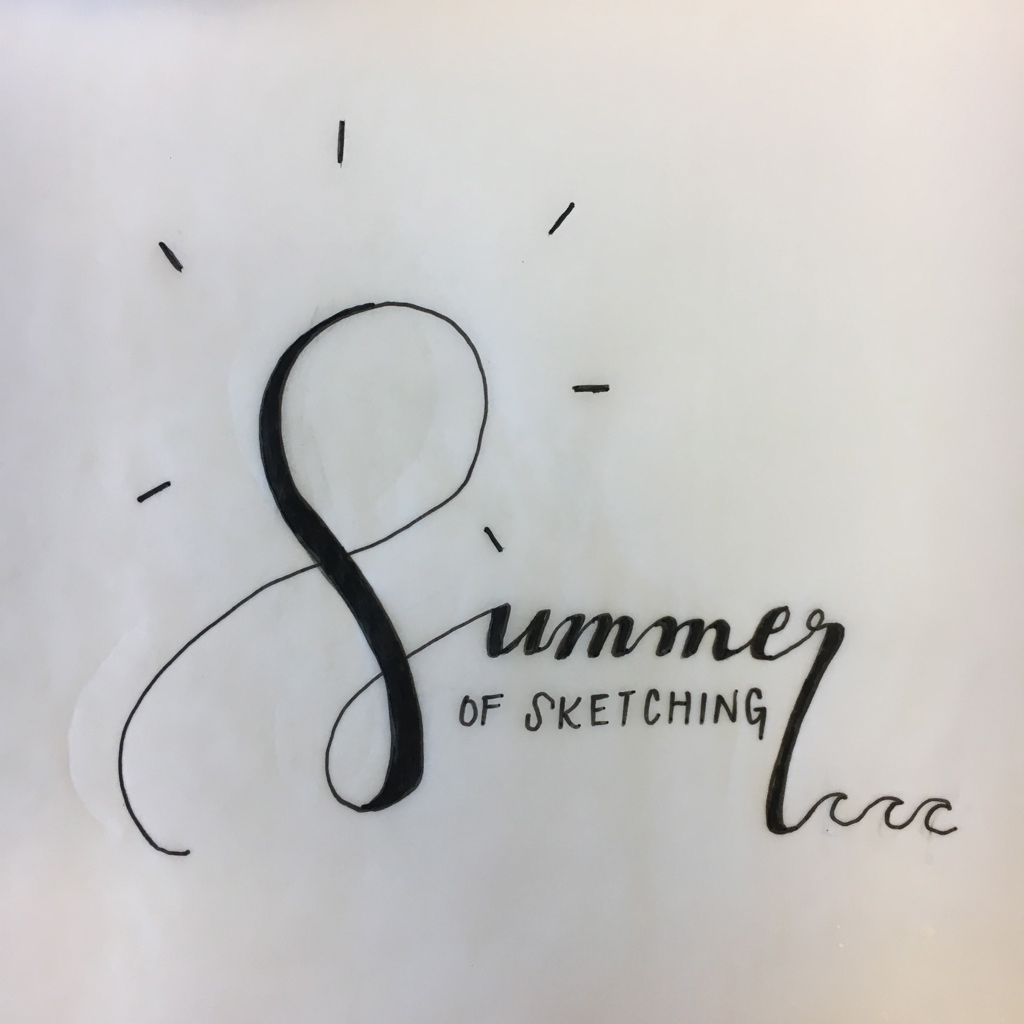 Summer
OF SKETCHING